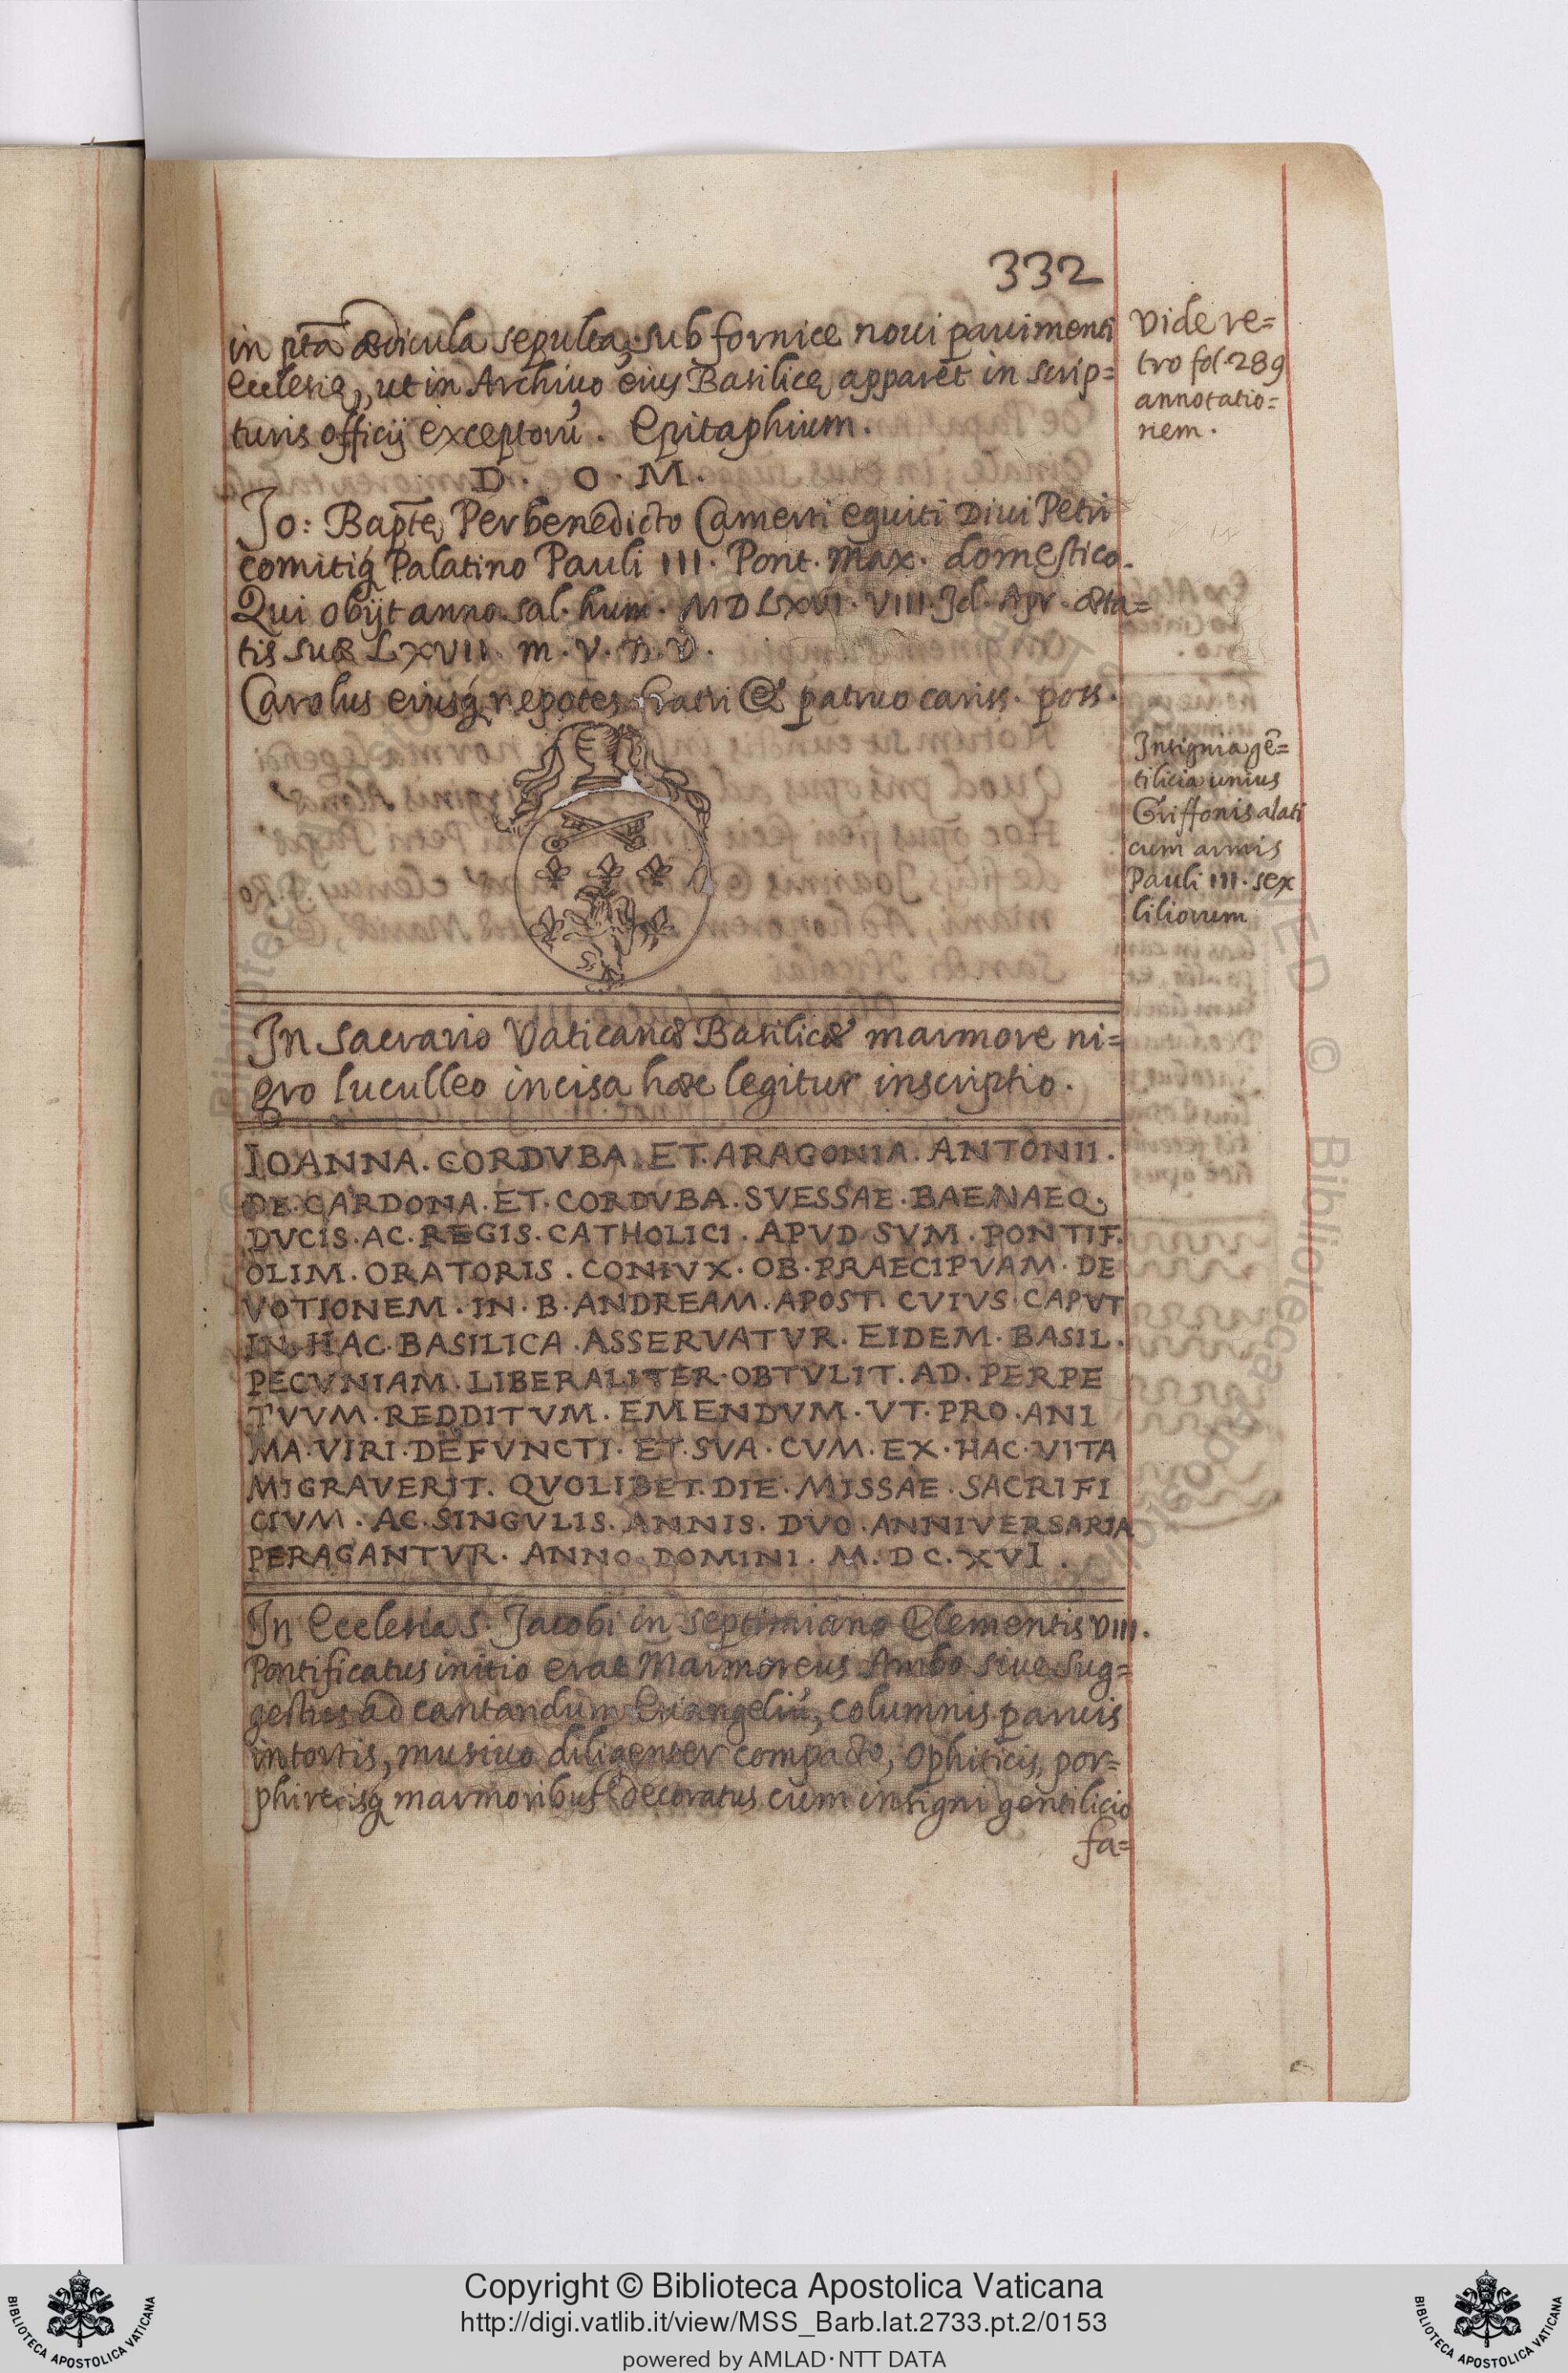 332
in pta᷉ ædicula sepulta, sub fornice noui pauimenti
Ecclesię, ut in Archiuo eius Basilicę apparet in scrip=
turis officij exceptorũ. Epitaphium.
D. O. M.
Jo: Bapt̃ę Perbenedicto Camerti equiti Diui Petri
comitiq́ Palatino Pauli III. Pont. Max. domestico.
Qui obijt anno sal. hum. MDLXVI. VIII. Id. Apr. æta=
tis suæ LXVII. m. V. D. V.
Carolus eiusq́ nepotes fratri & patruo cariss. poss.
Vide re=
tro fol. 289
annotatio=
nem.
Insignia gẽ=
tilicia unius
Griffonis alati
cum armis
Pauli III. sex
liliorum
In sacrario Vaticanæ Basilicæ marmore ni=
gro luculleo incisa hæc legitur inscriptio.
IOANNA. CORDVBA. ET. ARAGONIA. ANTONII.
DE. CARDONA. ET. CORDVBA. SVESSAE. BAENAEQ.
DVCIS. AC. REGIS. CATHOLICI. APVD. SVM. PONTIF.
OLIM. ORATORIS. CONIVX. OB. PRAECIPVAM. DE
VOTIONEM. IN. B. ANDREAM. APOST. CVIVS. CAPVT
IN. HAC. BASILICA. ASSERVATVR. EIDEM. BASIL.
PECVNIAM. LIBERALITER. OBTVLIT. AD. PERPE
TVVM. REDDITVM. EMENDVM. VT. PRO. ANI
MA. VIRI. DEFVNCTI. ET. SVA. CVM. EX. HAC. VITA
MIGRAVERIT. QVOLIBET. DIE. MISSAE. SACRIFI
CIVM. AC. SINGVLIS. ANNIS. DVO. ANNIVERSARIA
PERAGANTVR. ANNO. DOMINI. M. DC. XVI.
In Ecclesia S. Jacobi in Septimiano Clementis VIII.
Pontificatus initio erat Marmoreus Ambo siue sug=
gestus ad cantandum Euangeliũ, columnis paruis
intortis, musiuo diligenter compacto, Ophiticis, por=
phireisq́ marmoribus decoratus cum insigni gentilicio
fa=
Copyright © Biblioteca Apostolica Vaticana
http://digi.vatlib.it/view/MSS_Barb.lat.2733.pt.2/0153
powered by AMLAD·NTT DATA
BIBLIOTECA APOSTOLICA VATICANA
BIBLIOTECA APOSTOLICA VATICANA